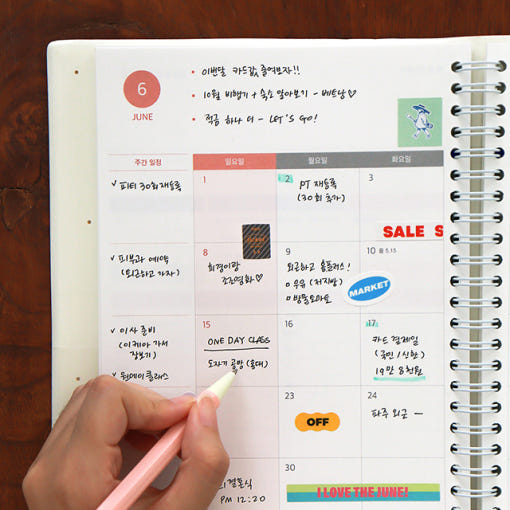 6
JUNE
• 이번달 카드값 줄여보자!!
• 10월 비행기 + 숙소 알아보기 - 베트남♡
• 적금 하나 더 - LET'S GO!
주간 일정
일요일
월요일
화요일
✓ 피티 30회 재등록
1
2
PT 재등록
(30회 추가)
3
SALE S
✓ 피부과 예약
(퇴근하고 가자)
8
희경이랑
조조영화♡
9
퇴근하고 홈플러스!
우유 (저지방)
방울토마토
10 음 5.15
MARKET
✓ 이사 준비
(이케아 가서
장보기)
✓ 원데이클래스
15
ONE DAY CLASS
도자기 공방 (홍대)
16
17
카드 결제일
(국민 / 신한)
19만 8천원
23
OFF
24
파주 외근 —
결혼식
PM 12:20
30
I LOVE THE JUNE!